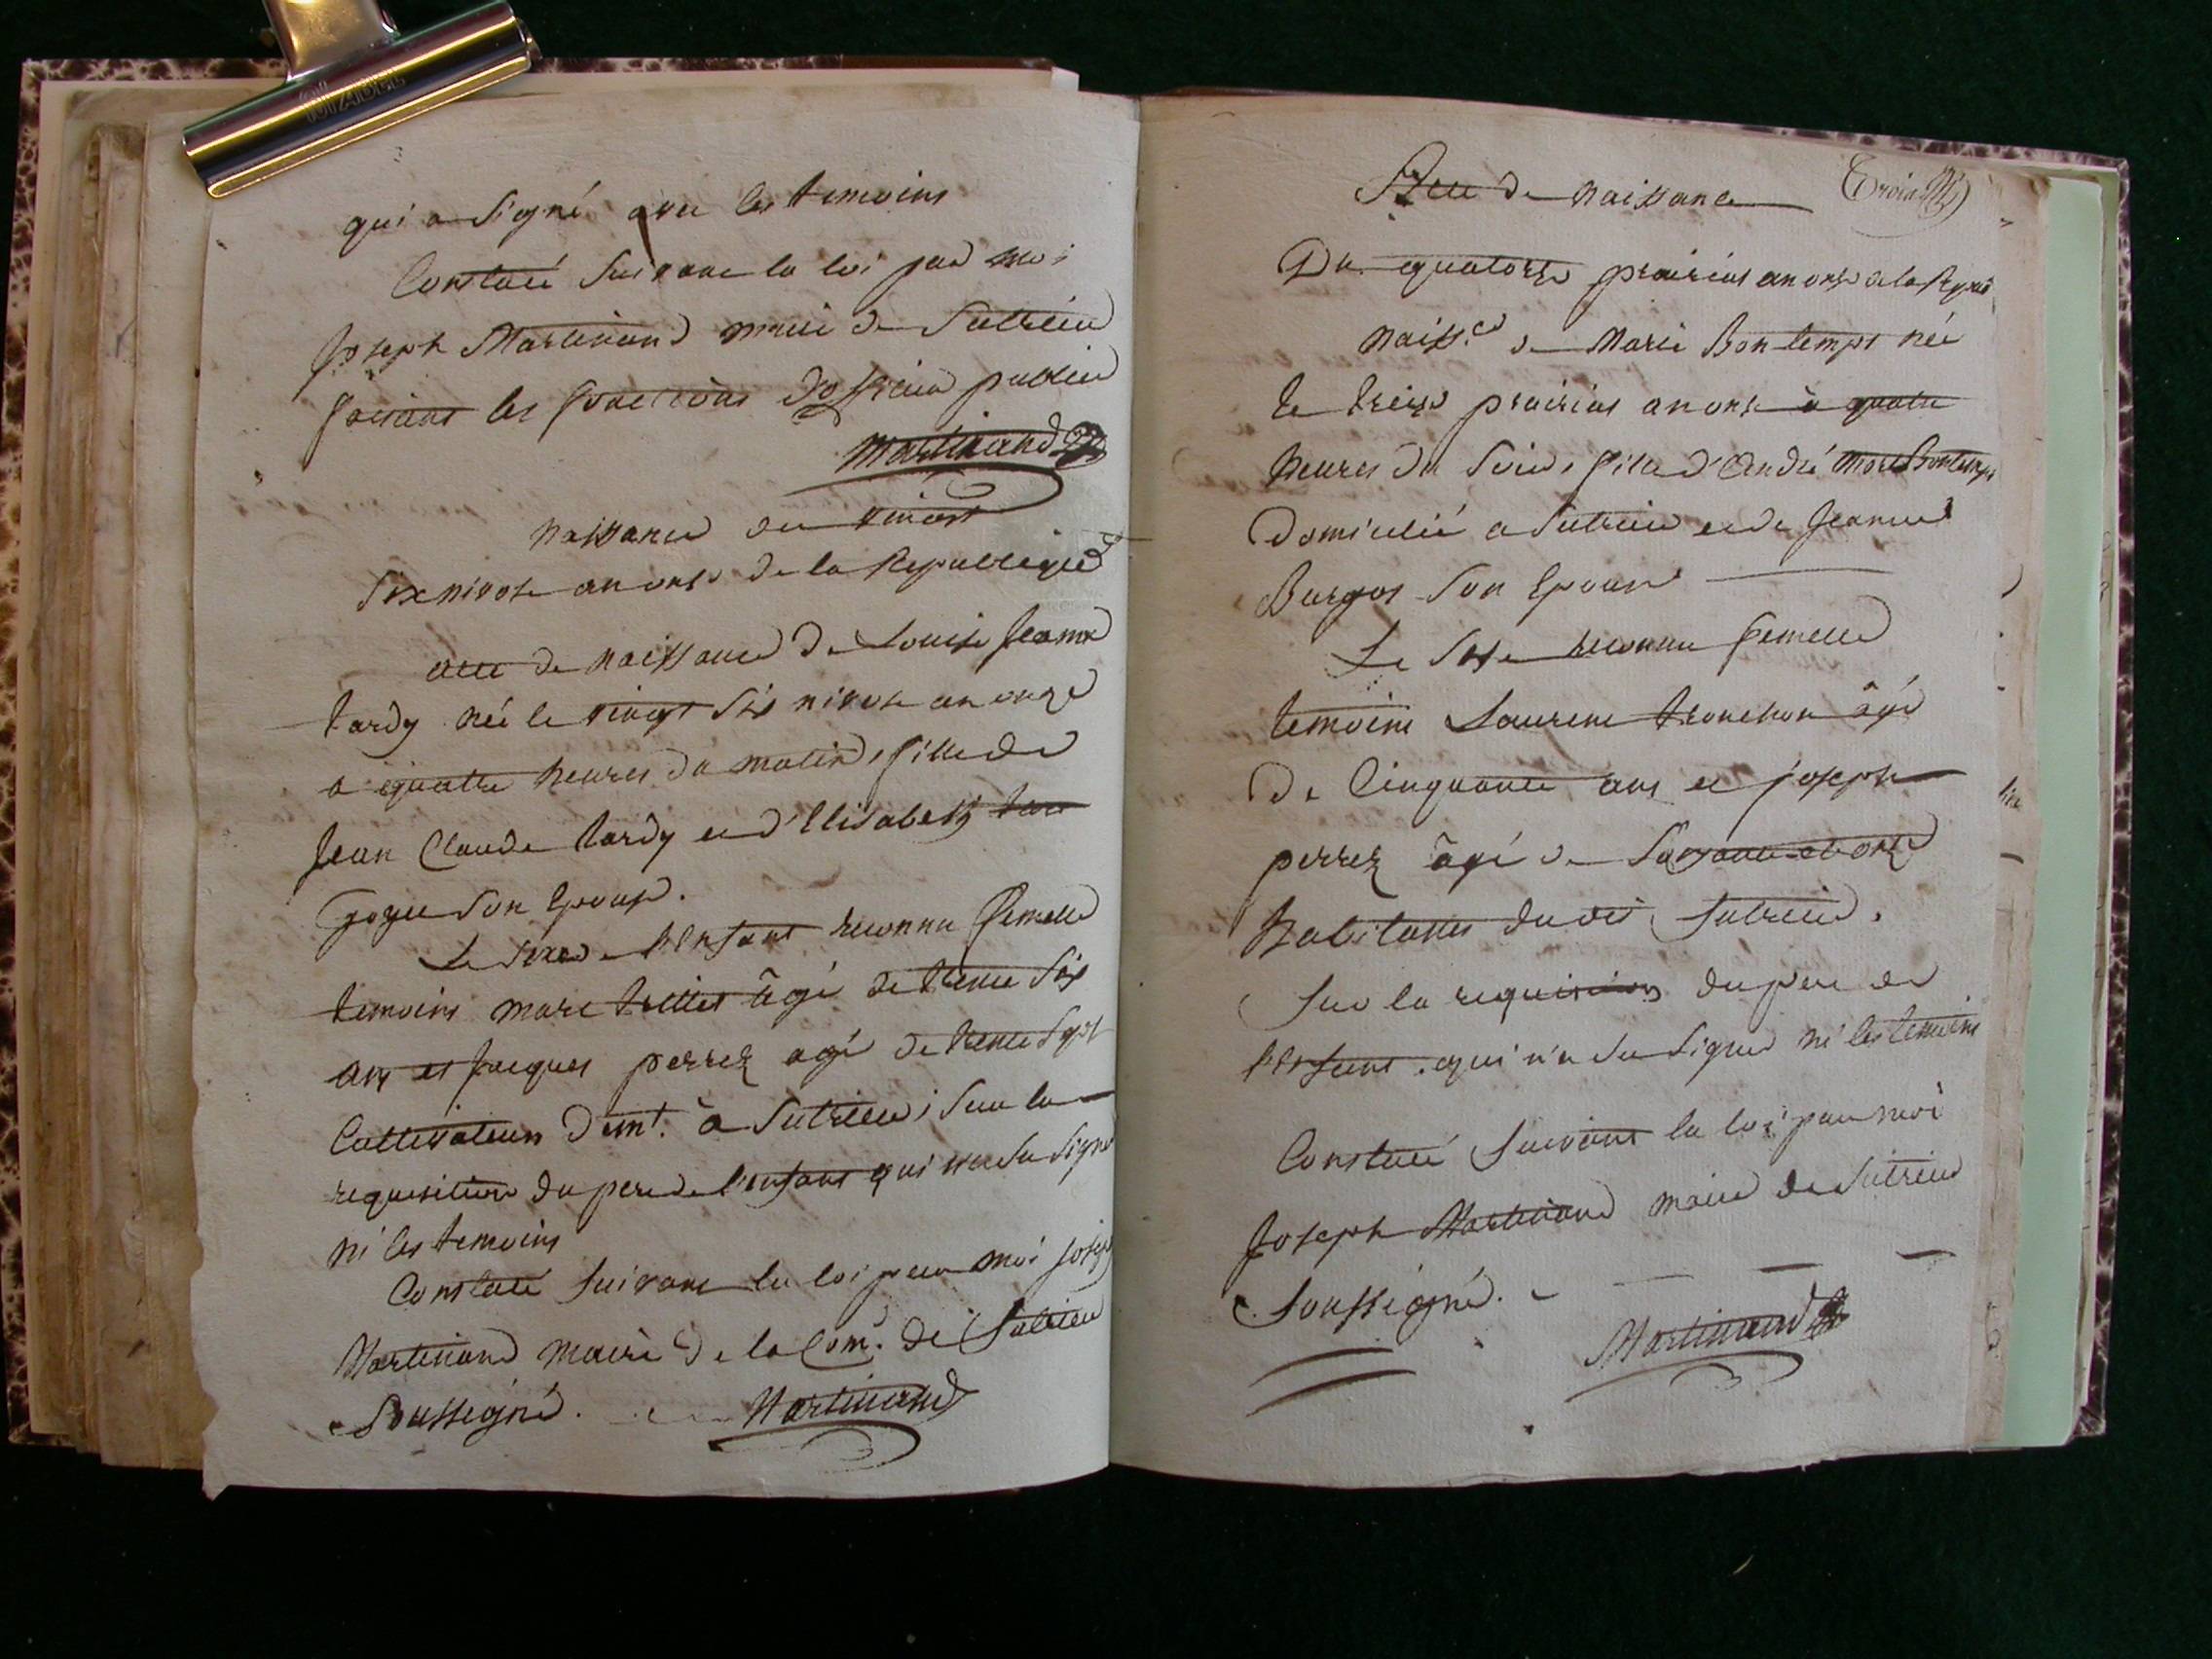 qui a Signé avec les temoins
Constaté Suivant la loi par moi
Joseph Martinand maire de Sutrieu
faisant les fonctions d'officier public
Martinand
Naissance du vingt
Six nivose an onze de la Republique
acte de naissance de Louise Jeanne
tardy née le vingt Six nivose an onze
a quatre heures du matin, fille de
Jean Claude tardy et d'Elisabeth
Son Epouse.
Le Sexe de l'Enfant reconnu femelle
temoins marc âgé de trente Six
ans et Jacques perrez agé de trente Sept
Cultivateurs demt. à Sutrieu ; Sur la
requisition du pere de l'enfant qui n'a Su Signer
ni les temoins
Constaté Suivant la loi par moi Joseph
Martinand maire de la Com. de Sutrieu
Soussigné. Martinand
Acte de Naissance
Du quatorze prairial an onze de la Repub
Naiss.ce de Marie Bontemps née
le treize prairial an onze à quatre
heures du Soir, fille d'André Bontemps
Domicilié a Sutrieu et de Jeanne
Burgos Son Epouse
Le Sexe reconnu femelle
temoins Laurent tronchon âgé
De Cinquante ans et joseph
perrez âgé de Soixante et onze
habitants dudit Sutrieu.
Sur la requisition du pere de
l'Enfant. qui n'a Su Signer ni les temoins
Constaté Suivant la loi par moi
Joseph Martinand maire de Sutrieu
Soussigné.
Martinand